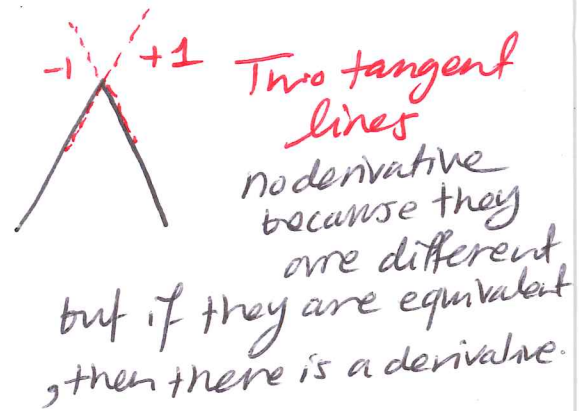 -1 +1
Two tangent
lines
no derivative
because they
are different
but if they are equivalent
, then there is a derivative.